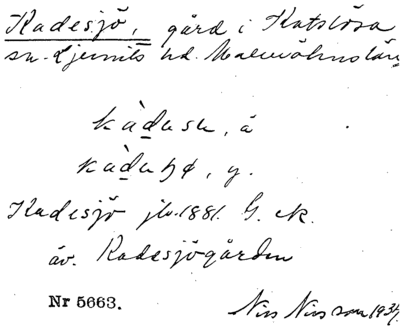 Kadesjö, gård i Katslösa
sn. Ljunits hd. Malmöhus län
kàdasu, ä
kàdaɧø, y.
Kadesjö jb. 1881. G. ek.
äv. Kadesjögården
Nr 5663.
Nils Nilsson 1934.